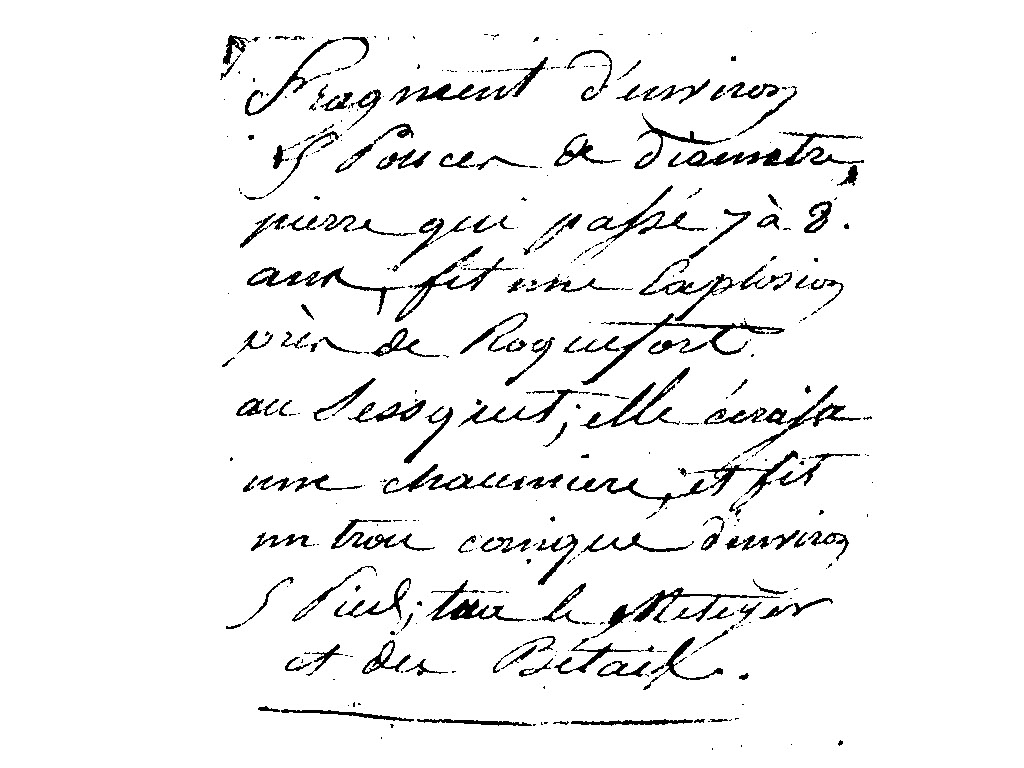 Fragment d'environ
5 Pouces de diametre,
pierre qui passé 7 à 8.
ans, fit une Explosion
près de Roquefort
au Sessquet; elle écrasa
une chaumiere, et fit
un trou conique d'environ
5 Pieds; tua le Meteyer
et des Bétail.